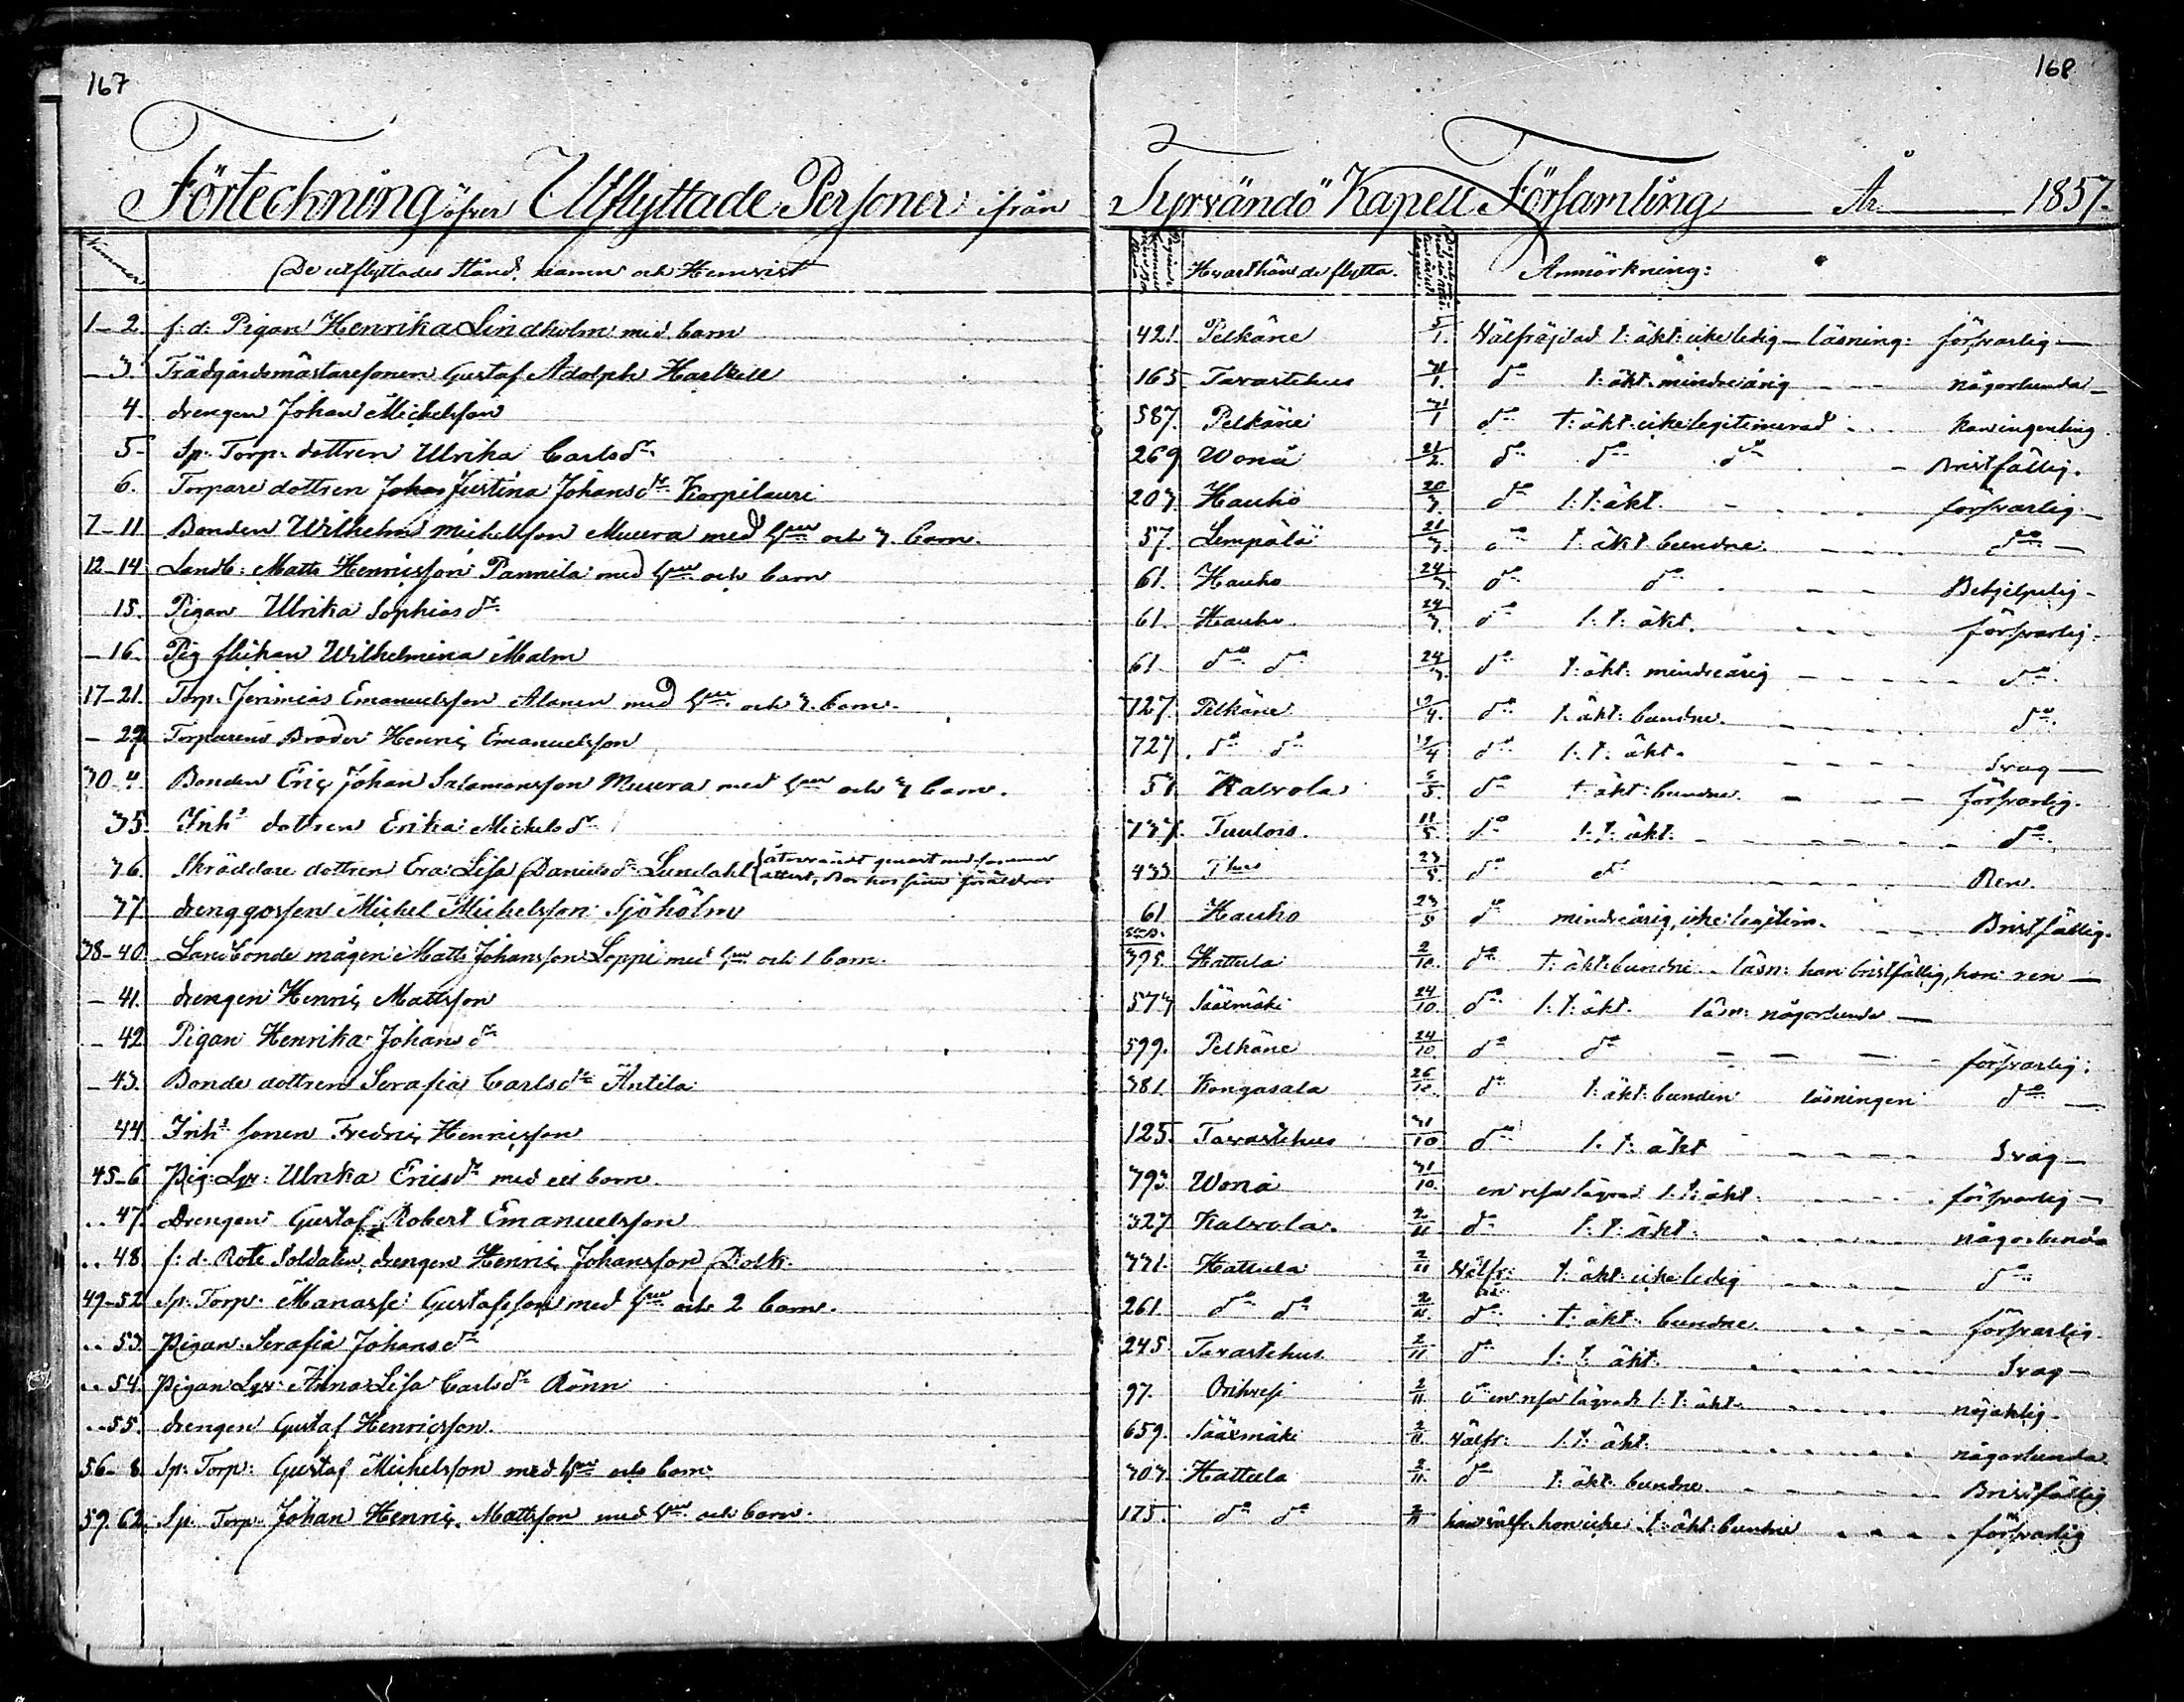 167
168
Förteckning öfver Utflyttade Personer ifrån Tyrvändö Kapell Församling År 1857.
Nummer De utflyttades Stånd, namn och Hemvist Hvarthän de flytta. Anmärkning:
1-2. f: d: Pigan Henrika Lindholm med barn 421. Pelkäne 5/1. Välfräjdad t: äkt: icke ledig - läsning: försvarlig -
3. Trädgårdsmästaresonen Gustaf Adolph Hartzell 165 Tavastehus 31/1. do t: äkt: mindreårig - - - någorlunda -
4. drengen Johan Michelsson 587. Pelkäne 31/1 do t: äkt: icke legitimerad - - - kan ingenting
5. Sp: Torp: dottren Ulrika Carlsdr 269 Wonå 21/2. do do do - Bristfällig.
6. Torpare dottren Justina Johansdr Korpilauri 203 Hauho 20/3 do l: t: äkt. - - - försvarlig -
7-11. Bonden Wilhelm Michelsson Muura med hu och 3 barn. 57. Lempälä 21/3. do t: äkt bundne. - - - do -
12-14. Landb: Matts Henricsson Pannila med hu och barn 61. Hauho 24/3. do do - - - Behjelpelig -
15. Pigan Ulrika Sophiasdr 61. Hauho 24/3. do l: t: äkt. - - - försvarlig -
16. Pig flickan Wilhelmina Malm 61 do do 24/3. do t: äkt: mindreårig - - - - do
17-21. Torp: Jerimias Emanuelsson Alanen med hu och 3 barn. 727. Pelkäne /4. do t: äkt: bundne. - - - do
Torparens Broder Henric Emanuelsson 727. do do /4 do l: t: äkt. - - - Svag -
30-4. Bonden Eric Johan Salomonsson Muura med hu och 3 barn. Kalvola 5/5. do t: äkt: bundne. - - - försvarlig.
35. Inhs dottren Erika Michelsdr Tuulois. 11/5. do l: t: äkt. - - - - do
36. Skräddare dottren Eva Lisa Danielsdr Lundahl 433 Thus 23/5. do do - - - - Ren.
37. drenggossen Michel Michelsson Sjöholm 61 Hauho 23/5 do mindreårig, icke legitim. - - - Bristfällig.
38-40. Landbonde mågen Matts Johansson Loppi med hu och 1 barn. 395. Hattula 2/10. do t: äkt: bundne - läsn: han bristfällig, hon ren -
41. drengen Henric Mattsson 573 Sääxmäki 24/10. do l: t: äkt. läsn: någorlunda -
42. Pigan Henrika Johansdr 599. Pelkäne 24/10. do do - - - - försvarlig:
43. Bonde dottren Serafia Carlsdr Äntila 381. Kongasala 26/10. do t: äkt: bunden läsningen do -
44. Inhs sonen Fredric Henricsson 125. Tavastehus 31/10 do l: t: äkt - - - - Svag -
45-6 Pig: Lpr: Ulrika Ericsdr med ett barn. 393. Wonå 31/10. en resa lägrad l: t: äkt. - - - försvarlig -
47. Drengen Gustaf Robert Emanuelsson 327. Kalvola. 2/11 do l: t: äkt. - - - - någorlunda
48. f: d: Rote Soldaten, drengen Henric Johansson Dolk. 331. Hattula 2/11 Välfr: t: äkt: icke ledig - - - - do
49-52 Sp: Torp: Manasse Gustafsson med hu och 2 barn. 261. do do 2/11. do t: äkt: bundne - - - - försvarlig.
53. Pigan Serafia Johansdr 245. Tavastehus 2/11 do l: t: äkt. - - - - Svag -
54. Pigan Lpr: Anna Lisa Carlsdr Rönn 97. Orihvesi 2/11 en resa lägrad l: t: äkt. - - - - nöjaktig.
55. drengen Gustaf Henricsson. 659. Sääxmäki 2/11. Välfr: l: t: äkt. - - - - någorlunda
56-8. Sp: Torp: Gustaf Michelsson med hu och barn. 303. Hattula 2/11. do t: äkt: bundne - - - - Bristfällig
59.62. Sp. Torp: Johan Henric Mattsson med hu och barn. 175. do do 2/11 han välfr. hon icke t: äkt: bundne - - - - försvarlig